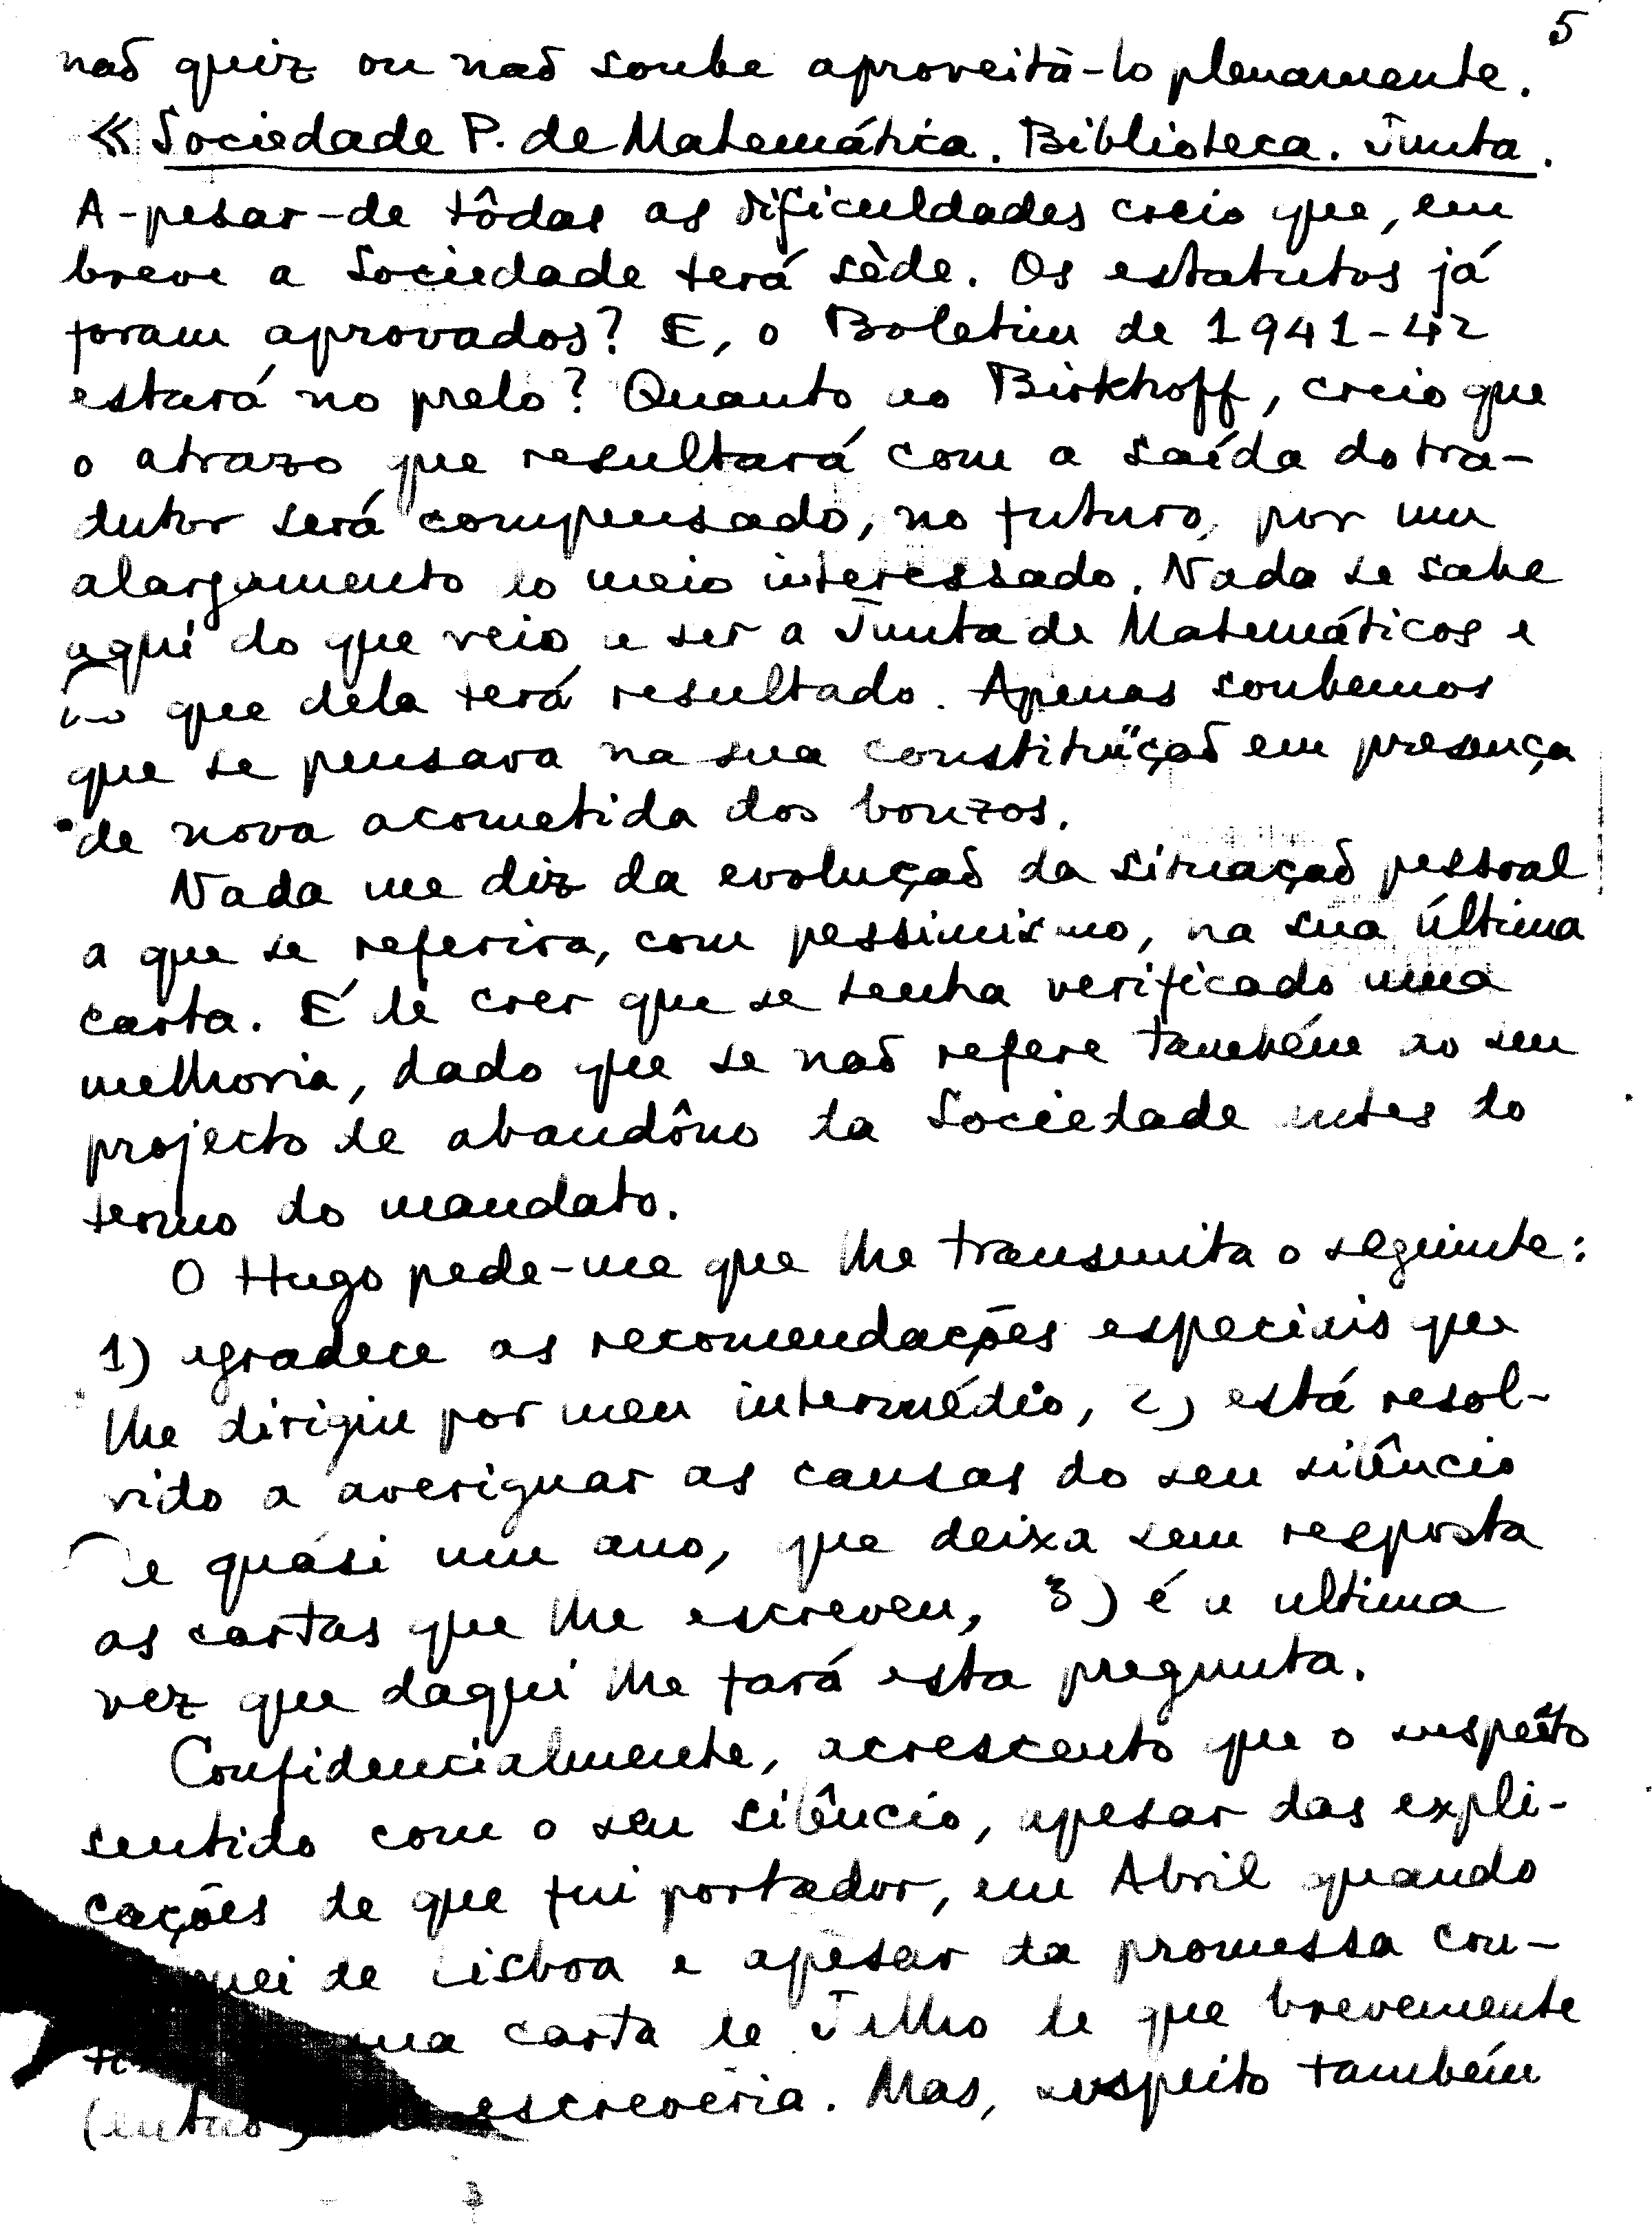 5
não quiz ou não soube aproveitá-lo plenamente.
« Sociedade P. de Matemática. Biblioteca. Junta.
A-pesar-de tôdas as dificuldades creio que, em
breve a Sociedade terá séde. Os estatutos já
foram aprovados? E, o Boletim de 1941-42
estará no prelo? Quanto ao Birkhoff, creio que
o atrazo que resultará com a saída do tra-
dutor será compensado, no futuro, por um
alargamento do meio interessado. Nada se sabe
aqui do que veio a ser a Junta de Matemáticos e
que dela terá resultado. Apenas soubemos
que se pensava na sua constituïção em presença
de nova acometida dos bonzos.
Nada me diz da evolução da situação pessoal
a que se referira, com pessimismo, na sua última
carta. É de crer que se tenha verificado uma
melhoria, dado que se não refere também ao seu
projecto de abandôno da Sociedade antes do
termo do mandato.
O Hugo pede-me que lhe transmita o seguinte:
1) agradece as recomendações especiais que
lhe dirigiu por meu intermédio, 2) está resol-
vido a averiguar as causas do seu silêncio
de quási um ano, que deixa sem resposta
as cartas que lhe escreveu, 3) é a ultima
vez que daqui lhe fará esta pregunta.
Confidencialmente, acrescento que o suspeito
sentido com o seu silêncio, apesar das expli-
cações de que fui portador, em Abril quando
de Lisboa e apesar da promessa con-
carta de Julho de que brevemente
escreveria. Mas, suspeito também